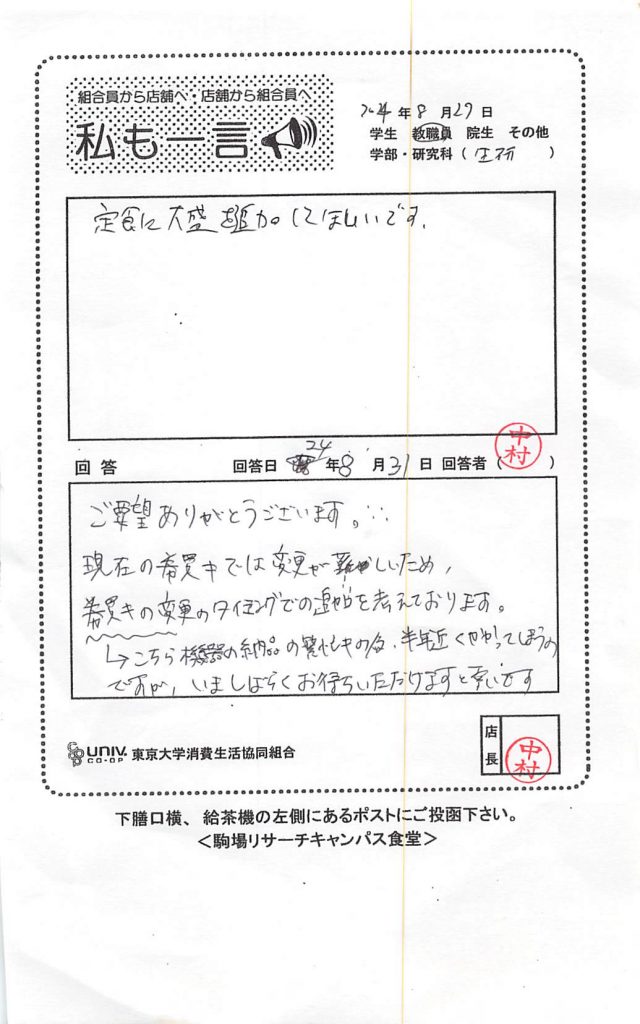 組合員から店舗へ・店舗から組合員へ
私も一言
2024年8月27日
学生 教職員 院生 その他
学部・研究科（生研）
定食に大盛を追加してほしいです。
回答 回答日 24年8月31日 回答者（中村）
ご要望ありがとうございます。
現在の券買キでは変更が難しいため、
券買キの変更のタイミングでの追加を考えております。
↳こちら機器の納品の 半年近くかかってしまうの
ですが、いましばらくお待ちいただけますと幸いです
UNIV. CO-OP 東京大学消費生活協同組合
店長 中村
下膳口横、給茶機の左側にあるポストにご投函下さい。
＜駒場リサーチキャンパス食堂＞